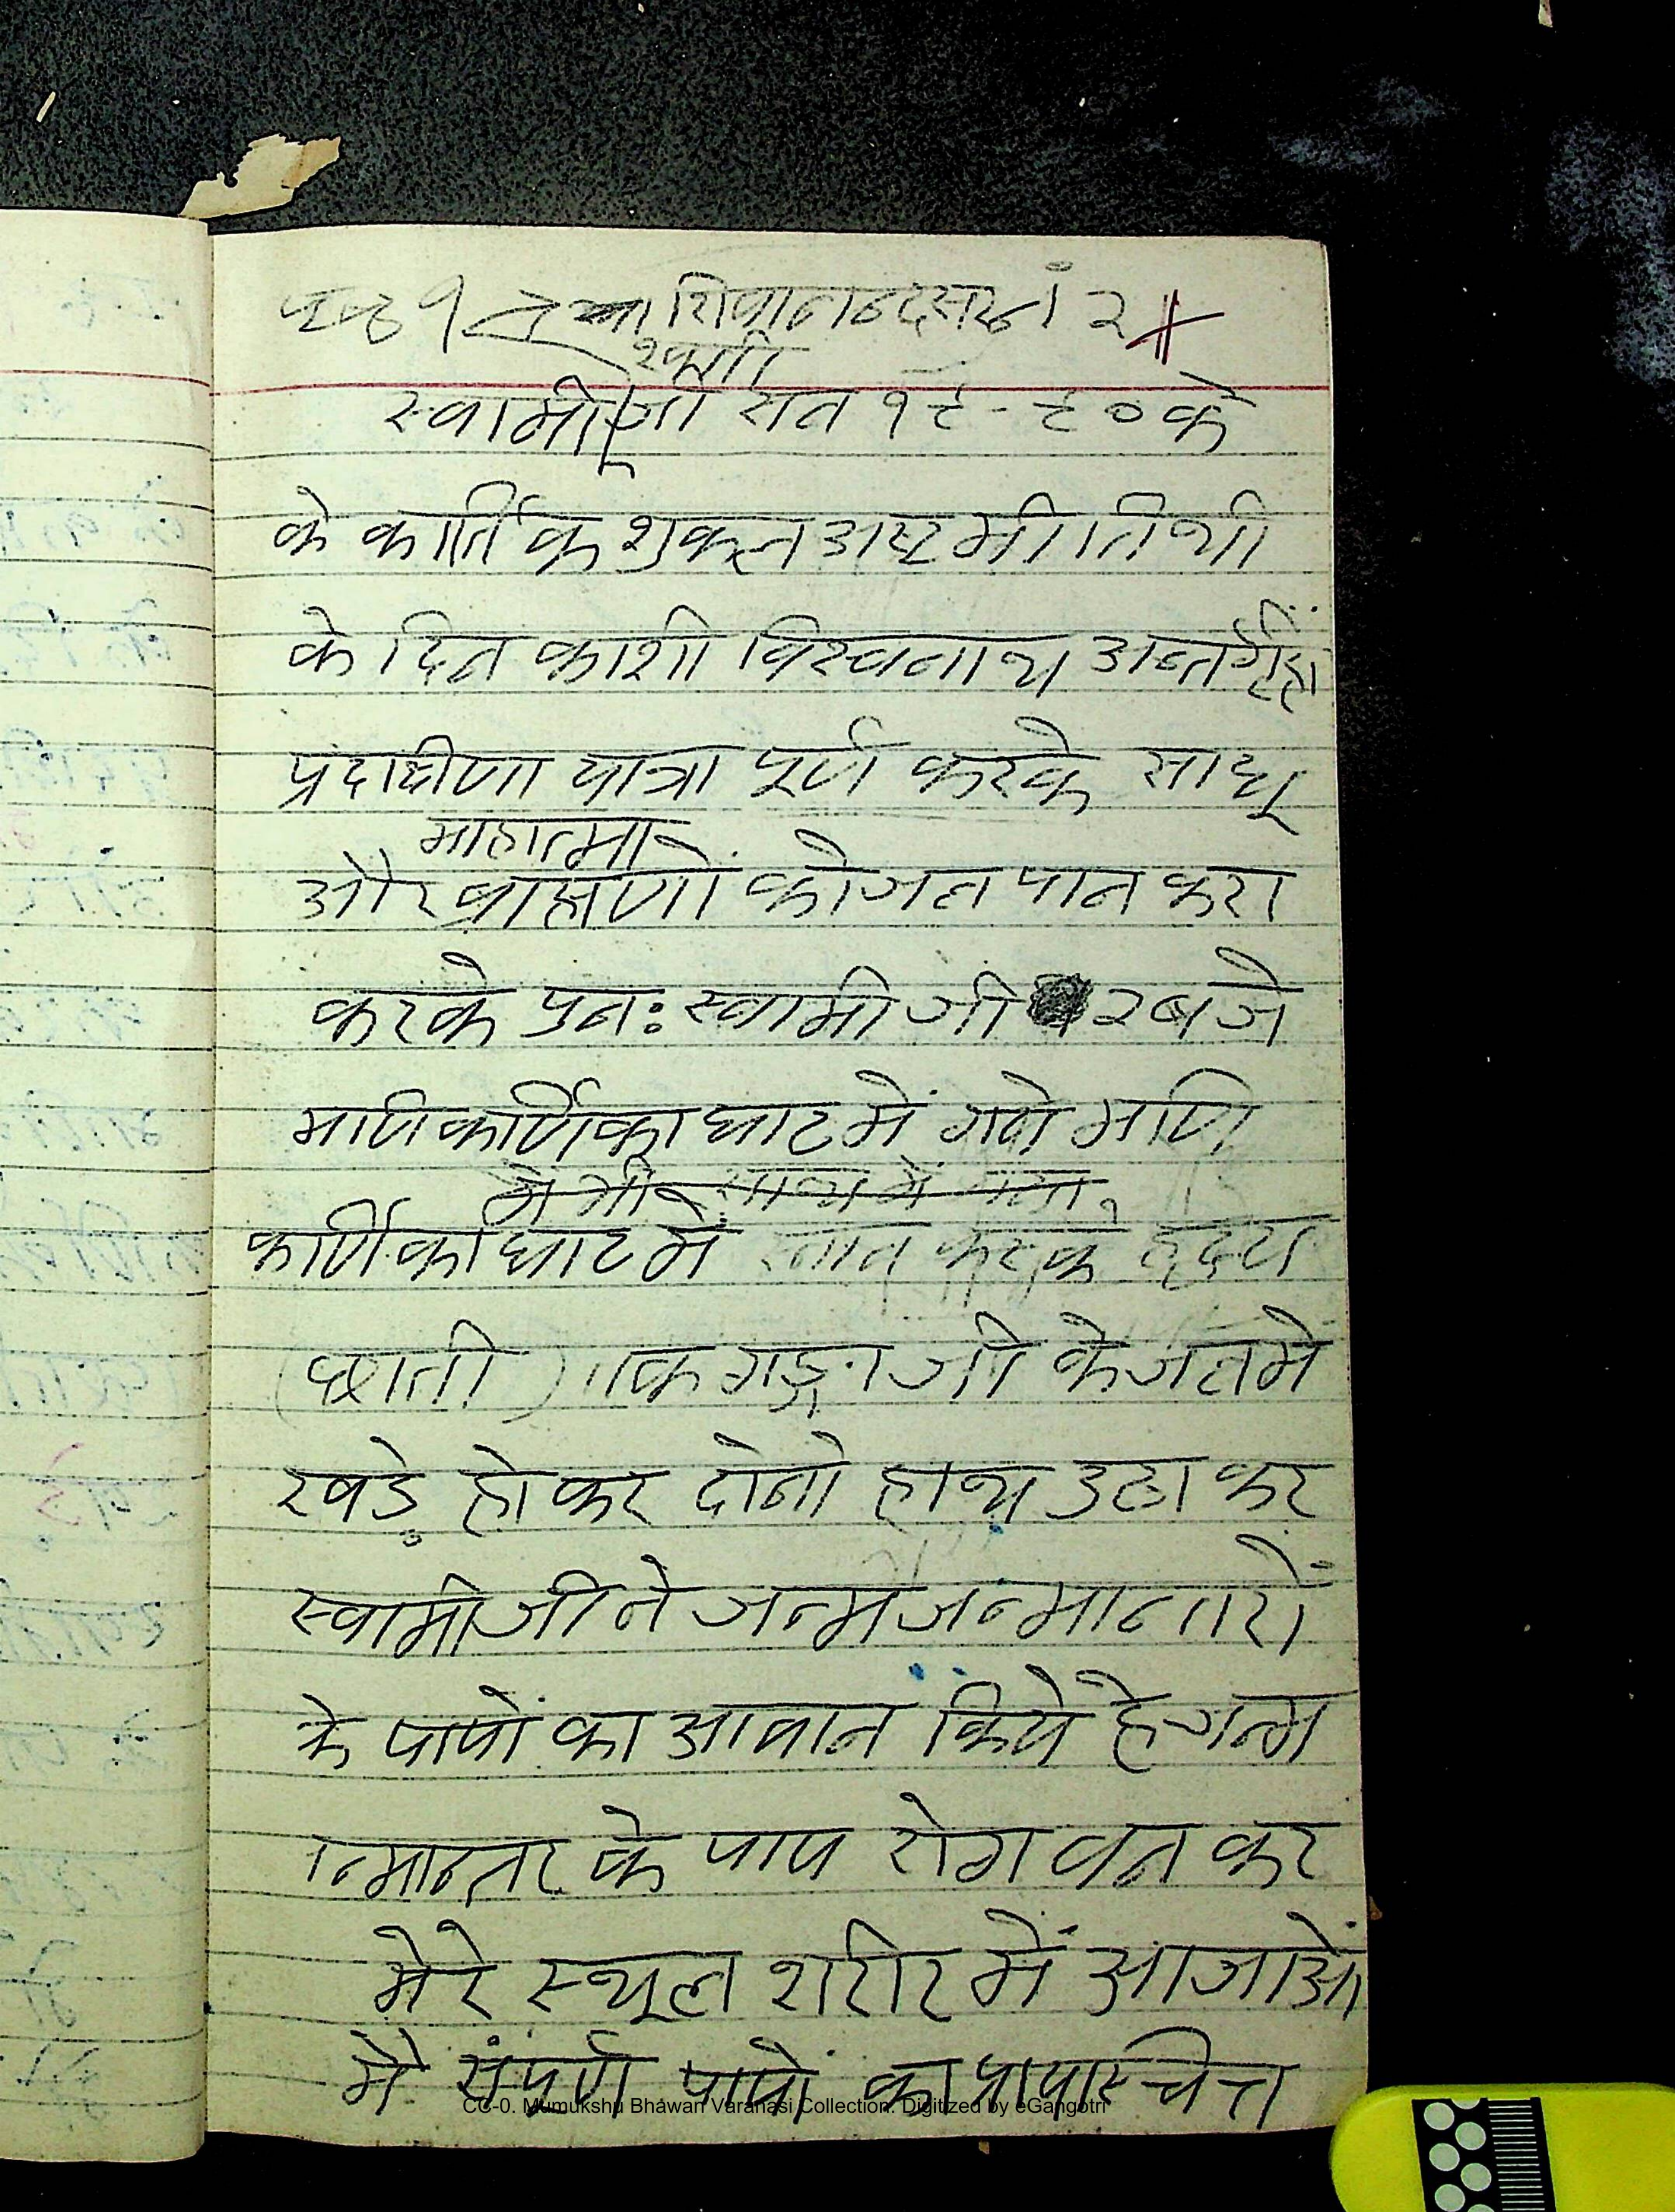 पृष्ठ १ शिवानन्द सरस्वती २
स्वामी जी सन १९-९० के
के कार्तिक शुक्ल अष्टमी तिथी
के दिन काशी विस्वनाथ अन्तर्गृही
प्रदाक्षीणा यात्रा पूर्ण करके साधू
माहात्मा
और ब्राह्मणों को जल पान करा
करके पुनः स्वामी जी २ बजे
माणिकार्णिका घाट में गये माणि
मै भी साथ में गया
कार्णिका घाट में स्नान करके हृदय
(छाती) तक गङ्गा जी के जल मे
खड़े होकर दोनो हाथ उठा कर
स्वामी जी ने जन्म जन्मान्तरों
के पापों का आवान किये है जन्म
न्मान्तर के पाप रोग वन कर
मेरे स्थूल शरीर में आजाओ
मै संपूर्ण पापों का प्रायास्चित्त
CC-0. Mumukshu Bhawan Varanasi Collection. Digitized by eGangotri